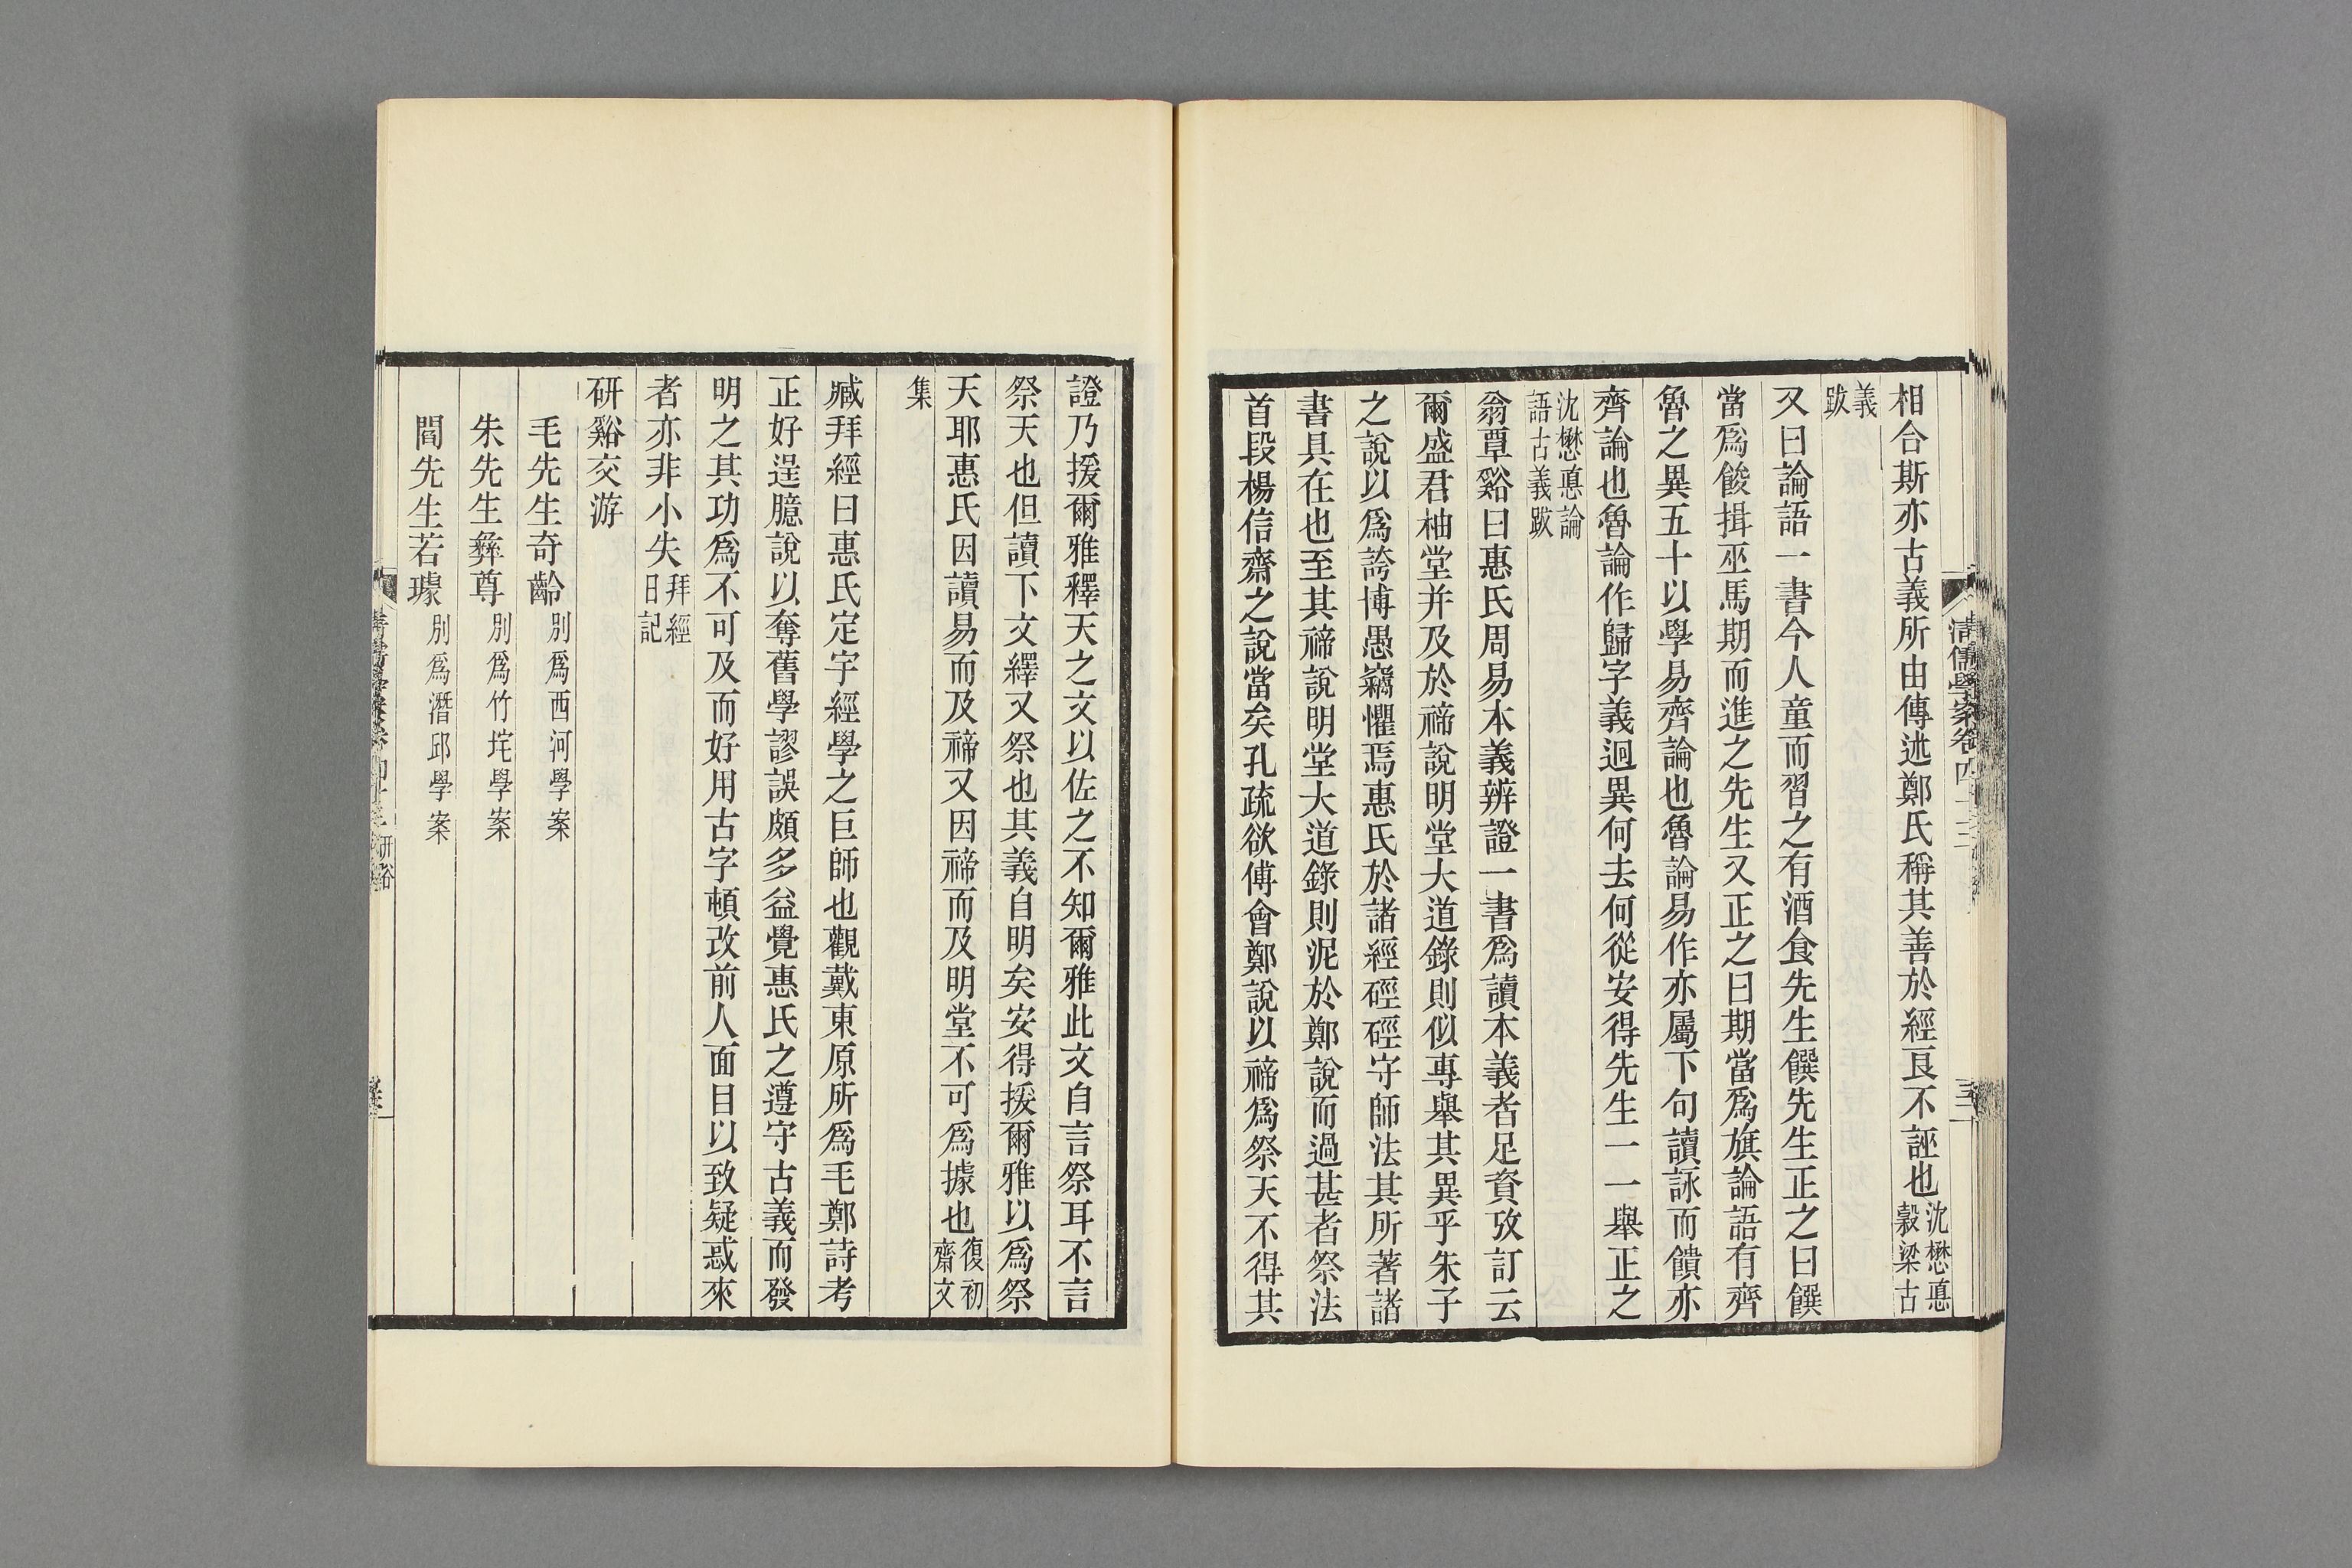 相合斯亦古義所由傳述鄭氏稱其善於經良不誣也沈懋悳穀梁古
義跋
又曰論語一書今人童而習之有酒食先生饌先生正之曰饌
當爲餕揖巫馬期而進之先生又正之曰期當爲旗論語有齊
魯之異五十以學易齊論也魯論易作亦屬下句讀詠而饋亦
齊論也魯論作歸字義迥異何去何從安得先生一一舉正之
沈懋悳論語古義跋
翁覃谿曰惠氏周易本義辨證一書爲讀本義者足資攷訂云
爾盛君柚堂并及於禘說明堂大道錄則似專舉其異乎朱子
之說以爲誇博愚竊懼焉惠氏於諸經硜硜守師法其所著諸
書具在也至其禘說明堂大道錄則泥於鄭說而過甚者祭法
首段楊信齋之說當矣孔疏欲傅會鄭說以禘爲祭天不得其
清儒學案卷四十三
證乃援爾雅釋天之文以佐之不知爾雅此文自言祭耳不言
祭天也但讀下文繹又祭也其義自明矣安得援爾雅以爲祭
天耶惠氏因讀易而及禘又因禘而及明堂不可爲據也復初齋文
集
臧拜經曰惠氏定宇經學之巨師也觀戴東原所爲毛鄭詩考
正好逞臆說以奪舊學謬誤頗多益覺惠氏之遵守古義而發
明之其功爲不可及而好用古字頓改前人面目以致疑惑來
者亦非小失拜經日記
研谿交游
毛先生奇齡別爲西河學案
朱先生彝尊別爲竹垞學案
閻先生若璩別爲潛邱學案